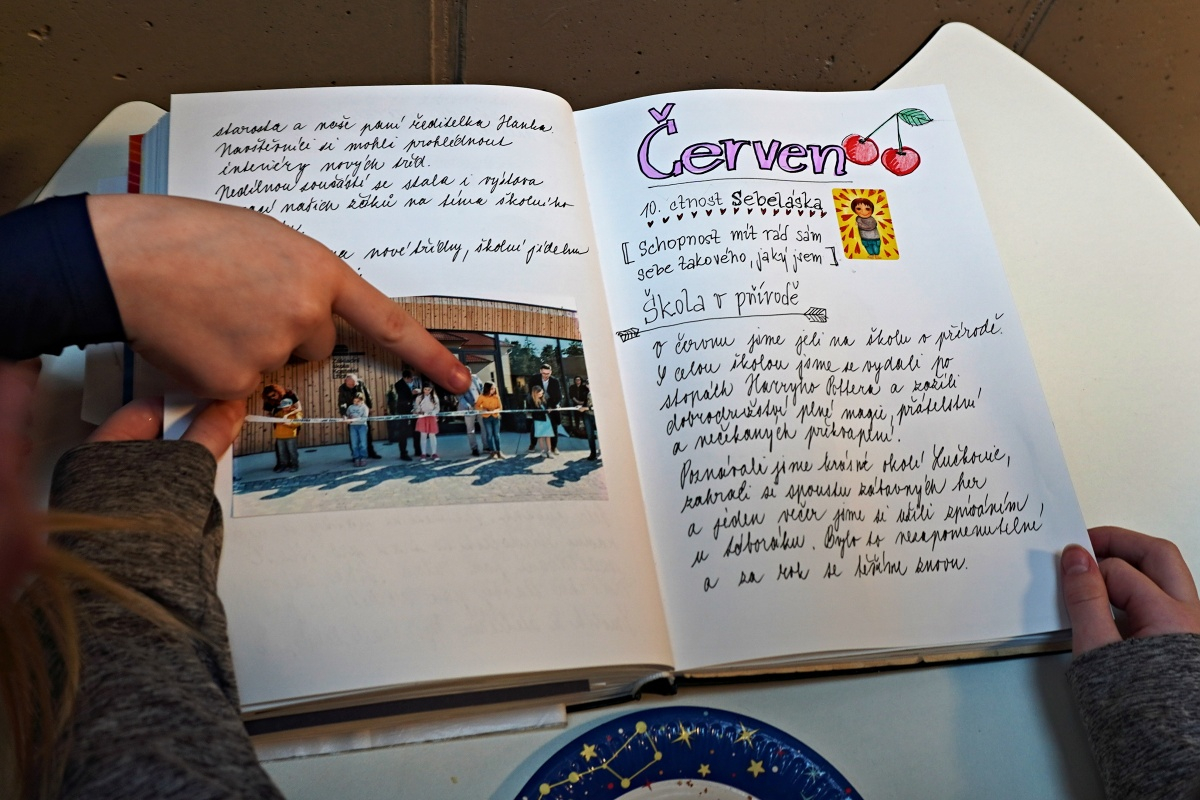 starosta a naše paní ředitelka Hanka.
Návštěvníci si mohli prohlédnout
interiéry nových tříd.
Nedílnou součástí se stala i výstava
našich žáků na téma školního
nové třídy, školní jídelnu
Červen
10. ctnost Sebeláska
[Schopnost mít rád sám
sebe takového, jaký jsem]
Škola v přírodě
V červnu jsme jeli na školu v přírodě.
S celou školou jsme se vydali po
stopách Harryho Pottera a zažili
dobrodružství plné magie, přátelství
a nečekaných překvapení.
Poznávali jsme krásné okolí
zahráli si spoustu zábavných her
a jeden večer jsme si užili zpívání
u táboráku. Bylo to nezapomenutelné
a za rok se těšíme znovu.